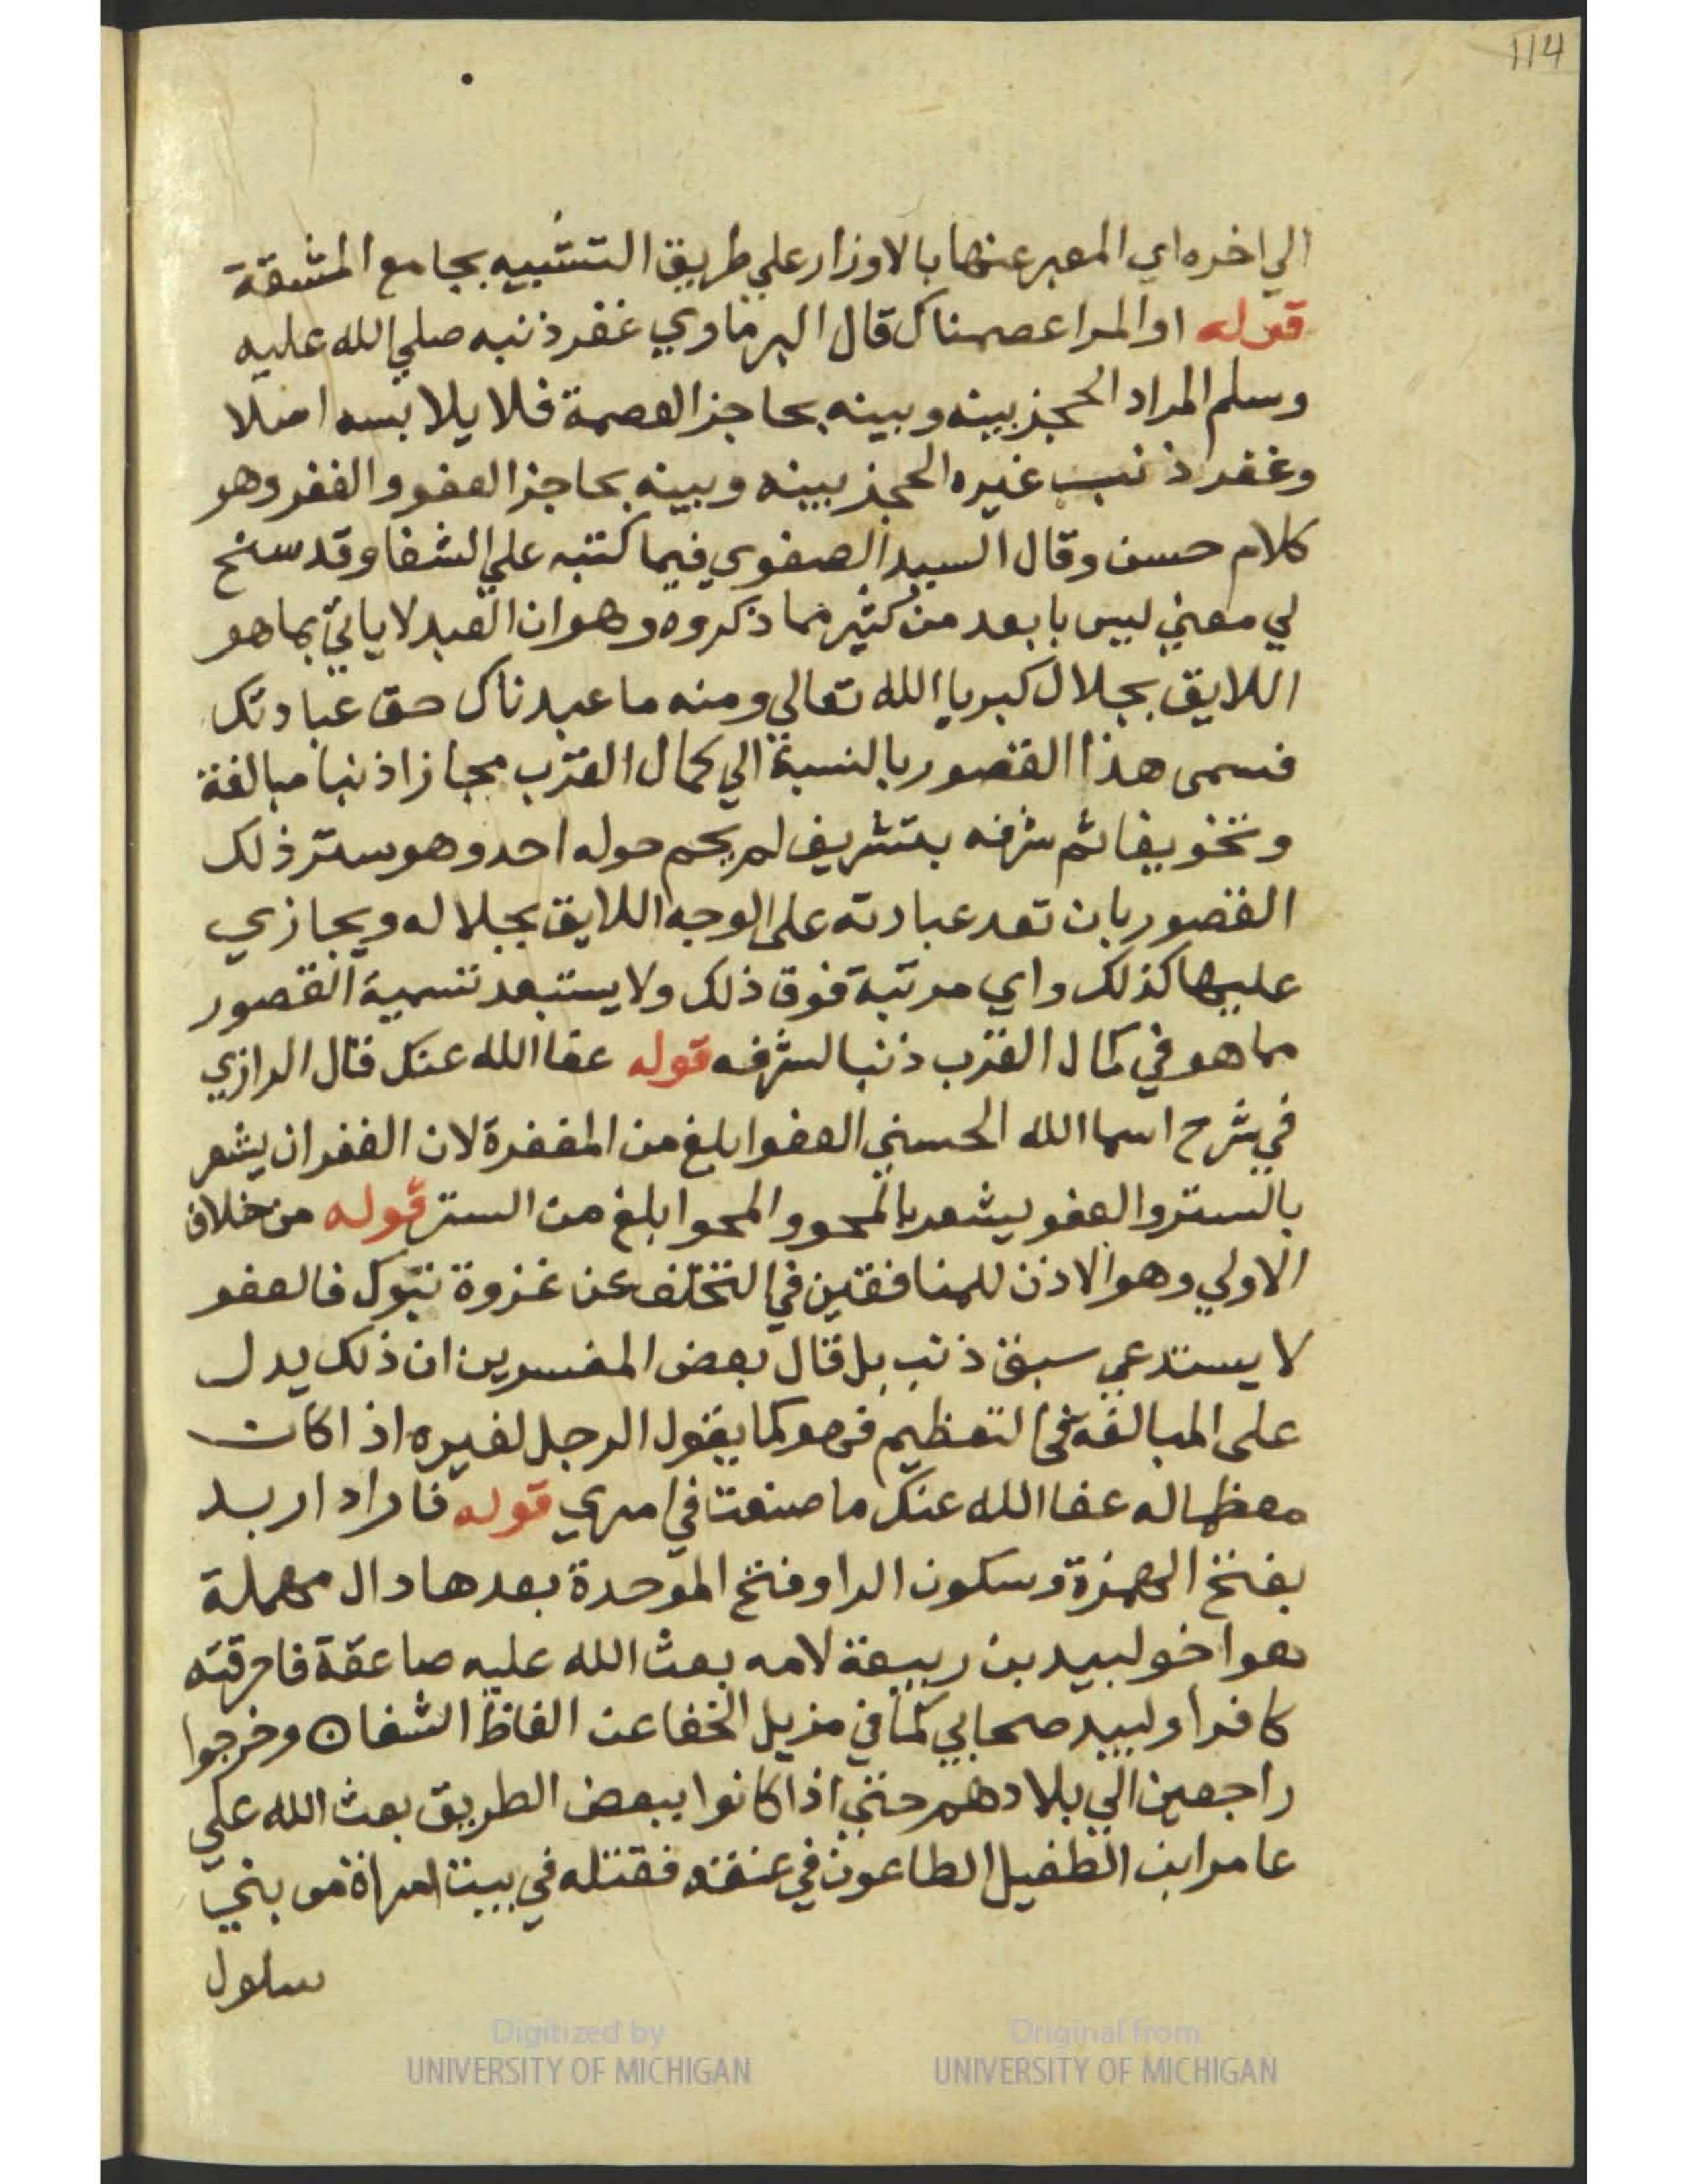 114
الي اخره اي المعبر عنها بالاوزار علي طريق التشبيه بجامع المشقة
قوله او المرا عصمناك قال البرماوي غفر ذنبه صلي الله عليه
وسلم المراد الحجز بينه وبينه بحاجز العصمة فلا يلابسه اصلا
وغفر ذنب غيره الحجز بينه وبينه بحاجز العفو والغفر وهو
كلام حسن وقال السيد الصفوي فيما كتبه علي الشفا وقد سنح
لي معني ليس بابعد من كثير مما ذكروه وهو ان العبد لا ياتي بما هو
اللايق بجلال كبريا الله تعالي ومنه ما عبدناك حق عبادتك
فسمى هذا القصور بالنسبة الي كمال القرب مجازا ذنبا مبالغة
وتخويفا ثم شرفه بتشريف لم يحم حوله احد وهو ستر ذلك
القصور بان تعد عبادته على الوجه اللايق بجلاله ويجازي
عليها كذلك واي مرتبة فوق ذلك ولا يستبعد تسمية القصور
مما هو في كمال القرب ذنبا لشرفه قوله عفا الله عنك قال الرازي
في شرح اسما الله الحسني العفو ابلغ من المغفرة لان الغفران يشعر
بالستر والعفو يشعر بالمحو والمحو ابلغ من الستر قوله من خلاف
الاولي وهو الاذن للمنافقين في التخلف عن غزوة تبوك فالعفو
لا يستدعي سبق ذنب بل قال بعض المفسرين ان ذلك يدل
على المبالغة في التعظيم فهو كما يقول الرجل لغيره اذا كان
معظما له عفا الله عنك ما صنعت في امري قوله فاراد اربد
بفتح الهمزة وسكون الرا وفتح الموحدة بعدها دال مهملة
هو اخو لبيد بن ربيعة لامه بعث الله عليه صاعقة فاحرقته
كافرا ولبيد صحابي كما في مزيل الخفا عن الفاظ الشفا ه وخرجوا
راجعين الي بلادهم حتي اذا كانوا ببعض الطريق بعث الله علي
عامر ابن الطفيل الطاعون في عنقه فقتله في بيت امراة من بني
سلول
Digitized by
UNIVERSITY OF MICHIGAN
Original from
UNIVERSITY OF MICHIGAN